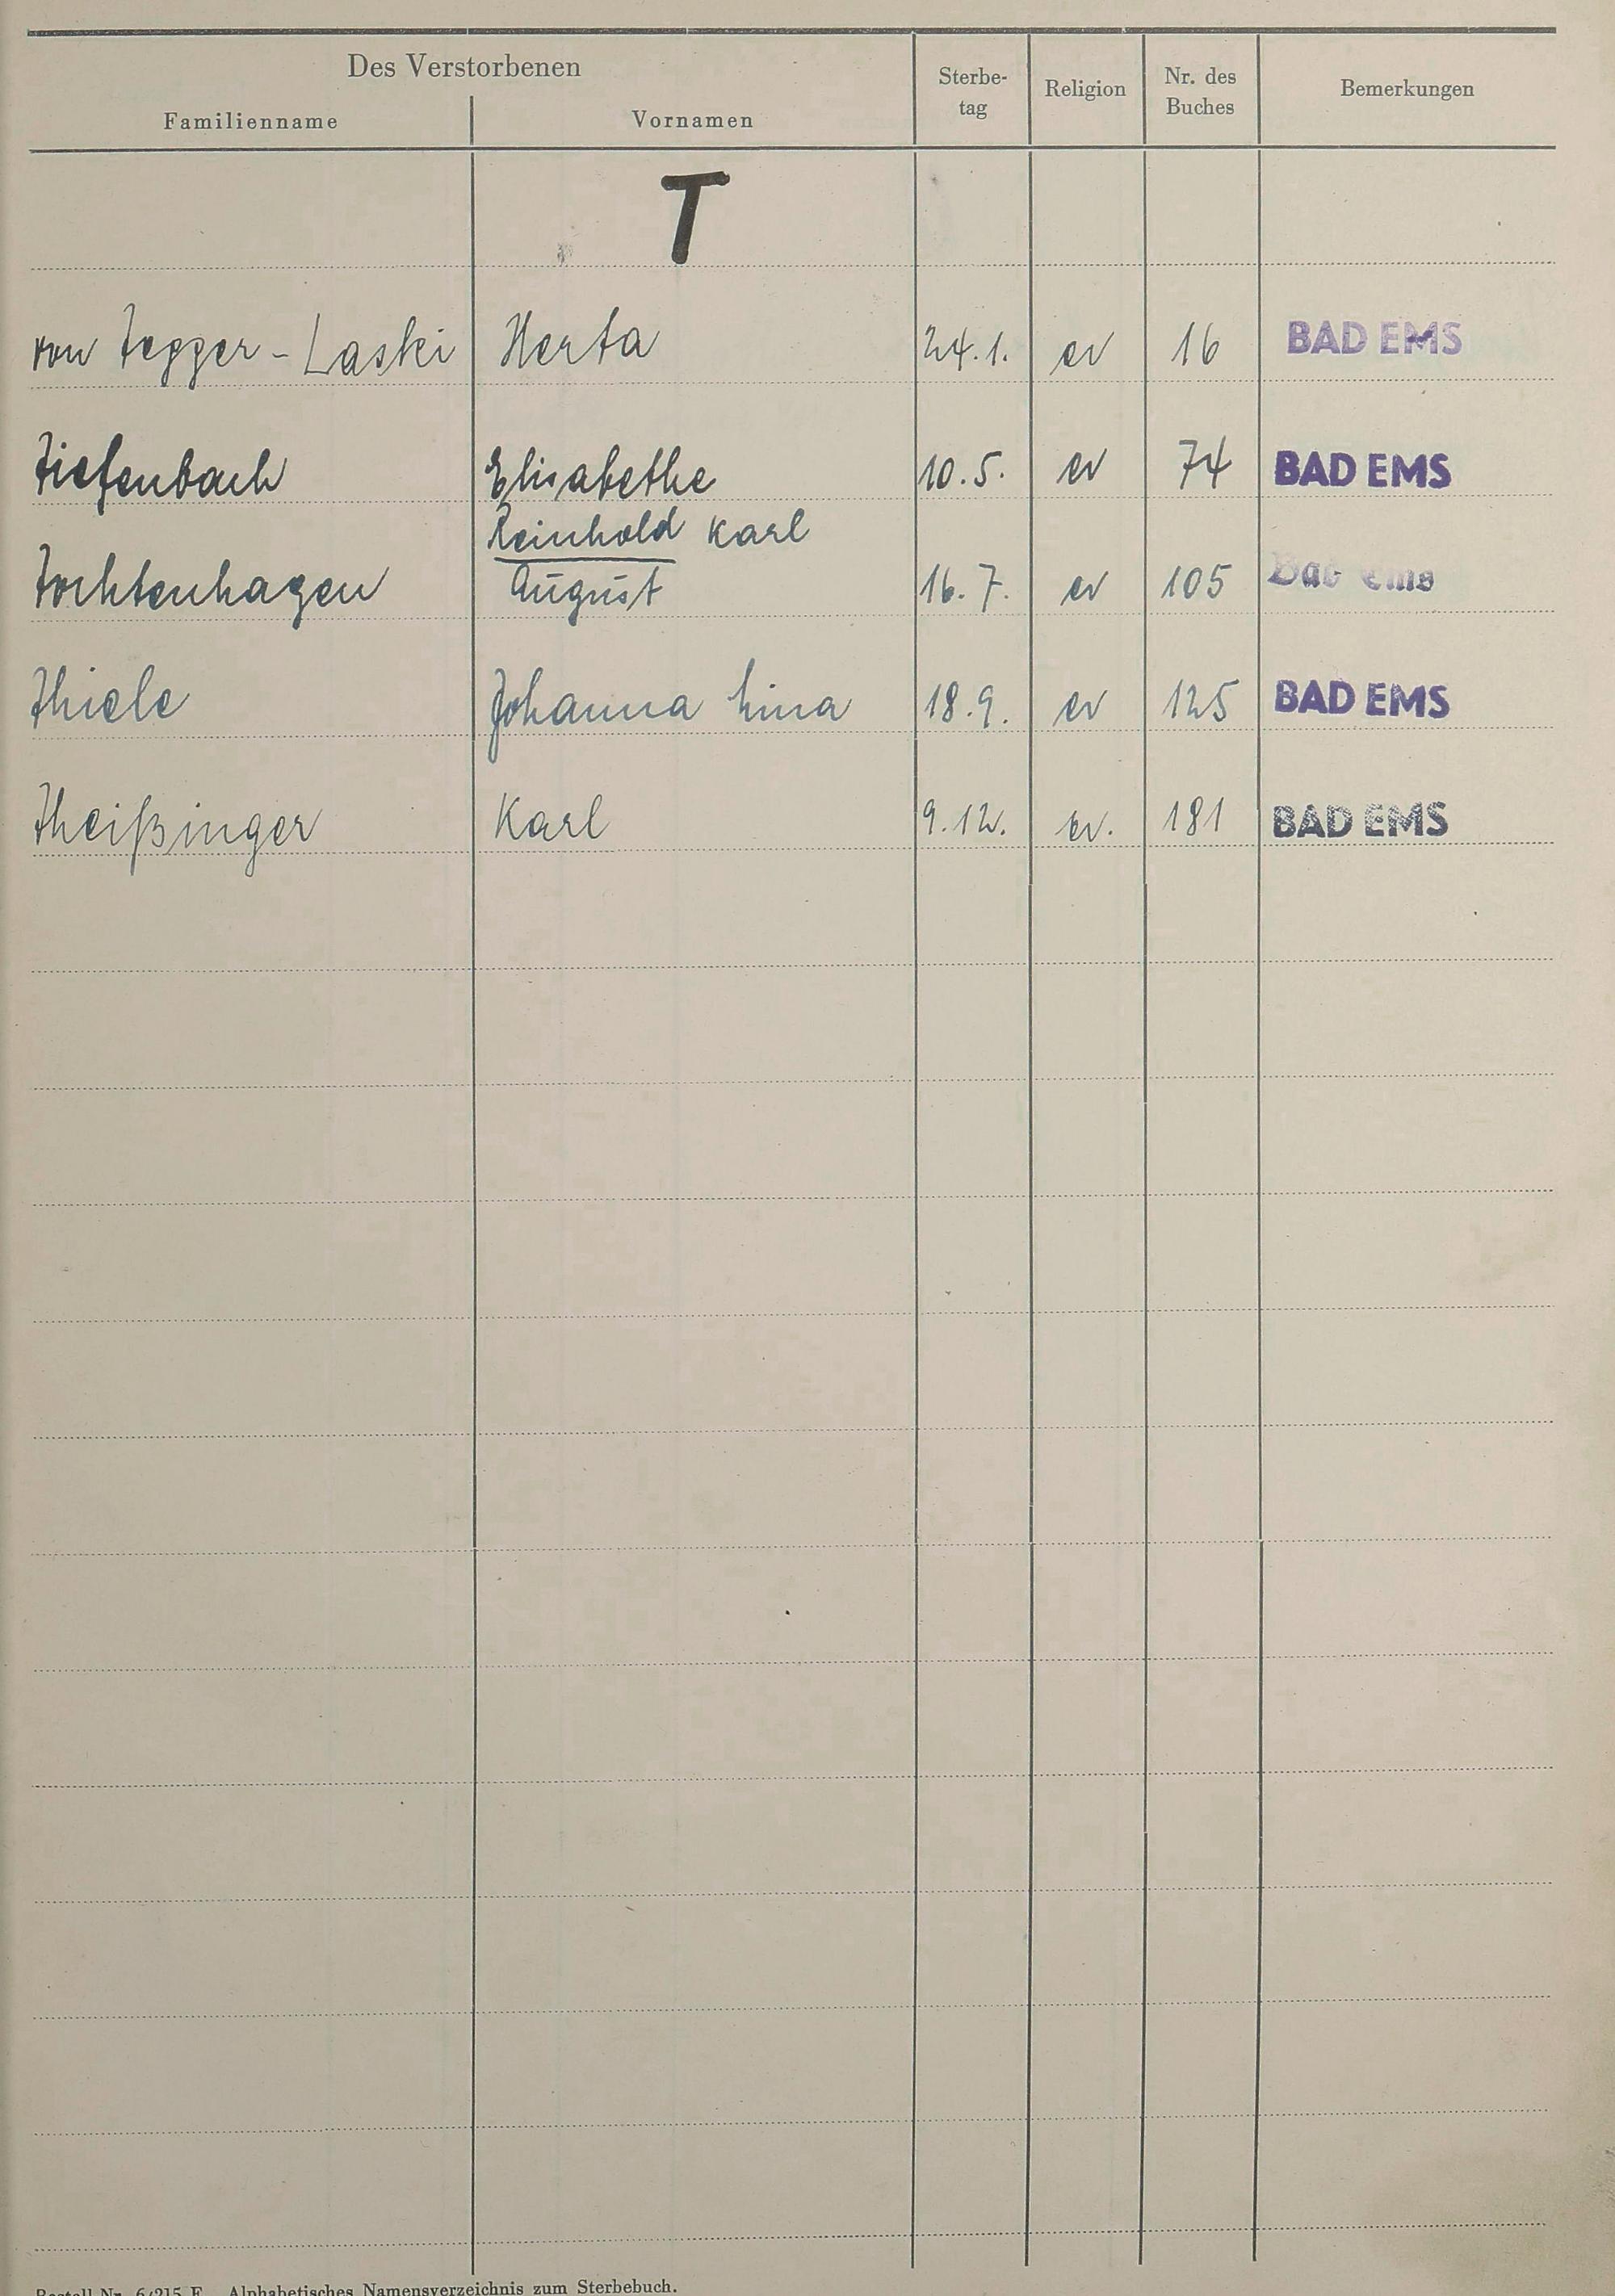 Des Verstorbenen
Familienname Vornamen Sterbe-tag Religion Nr. des Buches Bemerkungen
T
von Tepper-Laski Herta 24.1. ev 16 BAD EMS
Tiefenbach Elisabethe 10.5. ev 74 BAD EMS
Reinhold Karl
Tochtenhagen August 16.7. ev 105 Bad Ems
Thiele Johanna Lina 18.9. ev 125 BAD EMS
Theißinger Karl 9.12. ev. 181 BAD EMS
Bestell-Nr. 6/215 F. Alphabetisches Namensverzeichnis zum Sterbebuch.